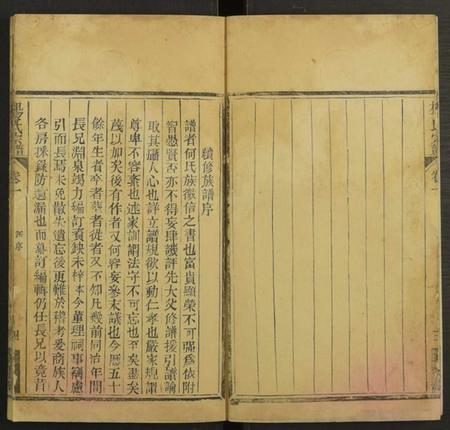 續修族譜序
譜者何氏族徵信之書也富貴顯榮不可强爲依附
智愚賢否亦不得妄肆譏評先大父修譜援引譜論
取其攝人心也詳立譜規欲以動仁孝也嚴家規謂
尊卑不容紊也述家訓謂法守不可忘也至矣盡矣
蔑以加矣後有作者又何容妄參末議也今歷五十
餘年生者卒者葬者徙者又不知凡幾前同治年間
長兄淵泉竭力編訂貲缺未梓本今董理祠事竊慮
引而長焉未免散失遺忘後更難於稽考爰商族人
各房採錄防遺漏也而纂訂編輯仍任長兄以竟昔
楊氏宗譜
卷一
序